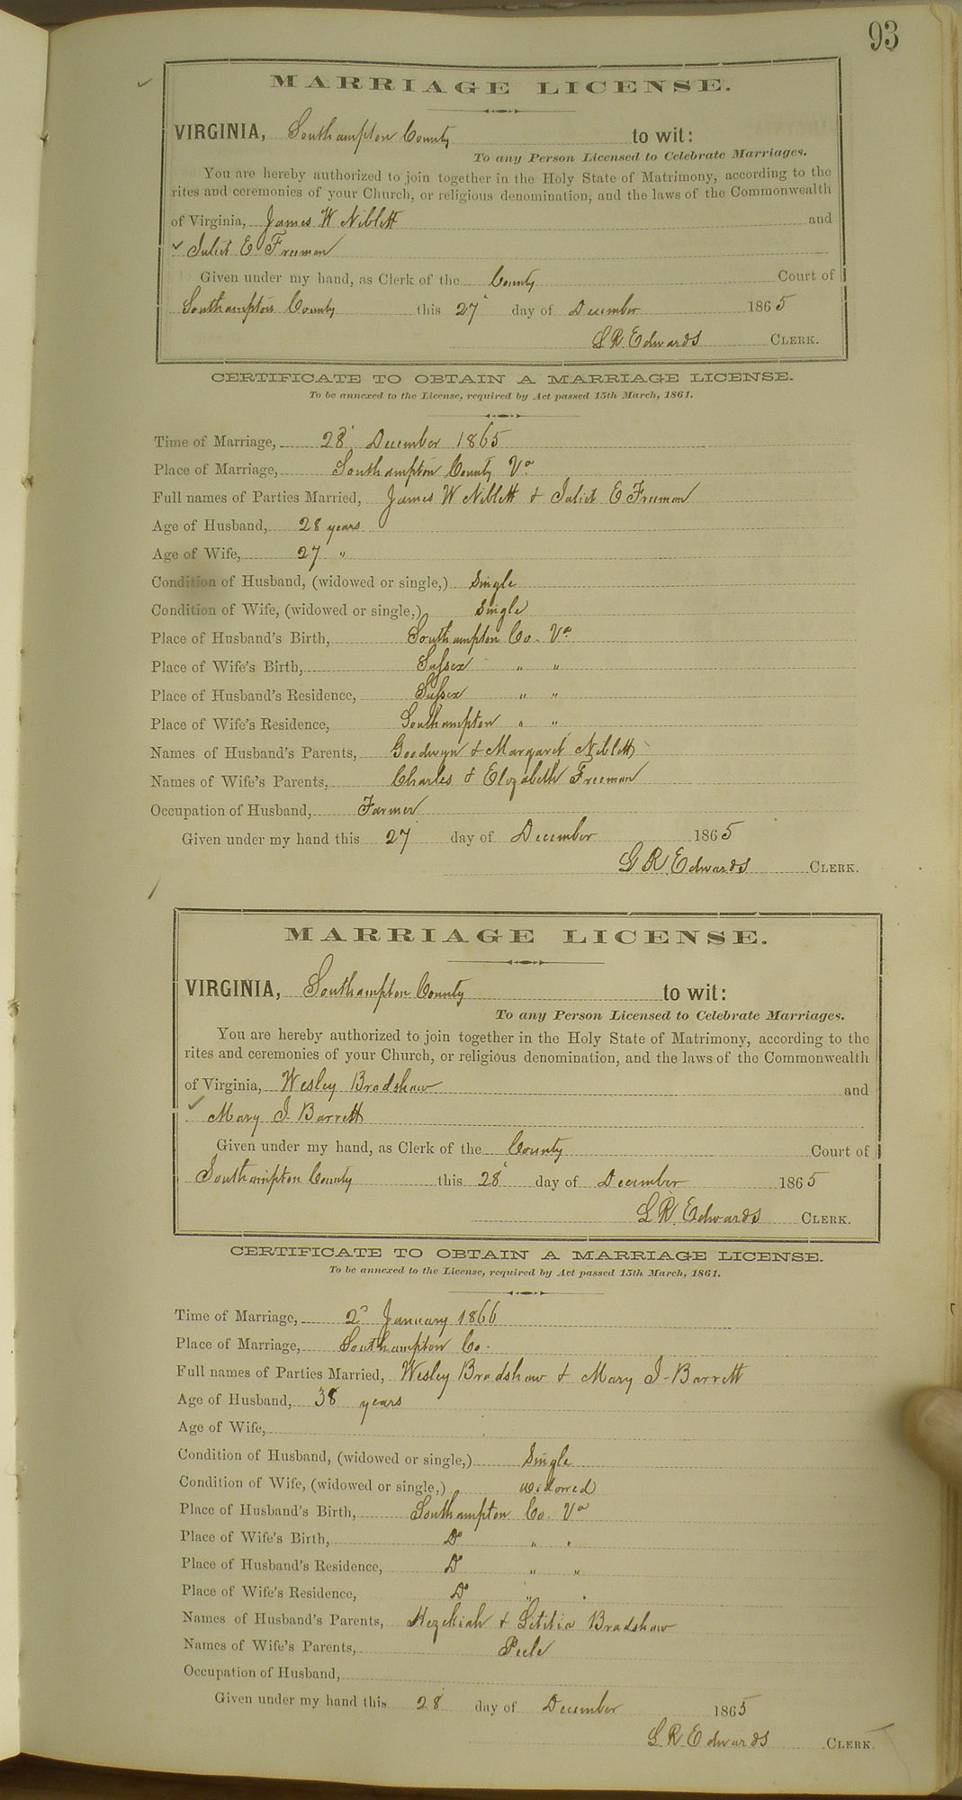 93
MARRIAGE LICENSE.
VIRGINIA, Southampton County to wit:
To any Person Licensed to Celebrate Marriages.
You are hereby authorized to join together in the Holy State of Matrimony, according to the
rites and ceremonies of your Church, or religious denomination, and the laws of the Commonwealth
of Virginia, James W Niblett and
Juliet E Freeman
Given under my hand, as Clerk of the County Court of
Southampton County this 27 day of December 1865
L R Edwards CLERK.
CERTIFICATE TO OBTAIN A MARRIAGE LICENSE.
To be annexed to the License, required by Act passed 15th March, 1861.
Time of Marriage, 28 December 1865
Place of Marriage, Southampton County Va
Full names of Parties Married, James W Niblett & Juliet E Freeman
Age of Husband, 28 years
Age of Wife, 27 "
Condition of Husband, (widowed or single,) Single
Condition of Wife, (widowed or single,) Single
Place of Husband's Birth, Southampton Co. Va
Place of Wife's Birth, Sussex " "
Place of Husband's Residence, Sussex " "
Place of Wife's Residence, Southampton " "
Names of Husband's Parents, Goodwyn & Margaret Niblett
Names of Wife's Parents, Charles & Elizabeth Freeman
Occupation of Husband, Farmer
Given under my hand this 27 day of December 1865
L R Edwards CLERK.
MARRIAGE LICENSE.
VIRGINIA, Southampton County to wit:
To any Person Licensed to Celebrate Marriages.
You are hereby authorized to join together in the Holy State of Matrimony, according to the
rites and ceremonies of your Church, or religious denomination, and the laws of the Commonwealth
of Virginia, Wesley Bradshaw and
Mary J. Barrett
Given under my hand, as Clerk of the County Court of
Southampton County this 28 day of December 1865
L R Edwards CLERK.
CERTIFICATE TO OBTAIN A MARRIAGE LICENSE.
To be annexed to the License, required by Act passed 15th March, 1861.
Time of Marriage, 2d January 1866
Place of Marriage, Southampton Co.
Full names of Parties Married, Wesley Bradshaw & Mary J. Barrett
Age of Husband, 38 years
Age of Wife,
Condition of Husband, (widowed or single,) Single
Condition of Wife, (widowed or single,) widowed
Place of Husband's Birth, Southampton Co. Va
Place of Wife's Birth, Do " "
Place of Husband's Residence, Do " "
Place of Wife's Residence, Do " "
Names of Husband's Parents, Hezekiah & Letitia Bradshaw
Names of Wife's Parents, Peele
Occupation of Husband,
Given under my hand this 28 day of December 1865
L R Edwards CLERK.